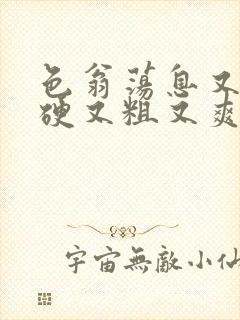 色翁荡息又
硬又粗又爽
宇宙無敵小仙